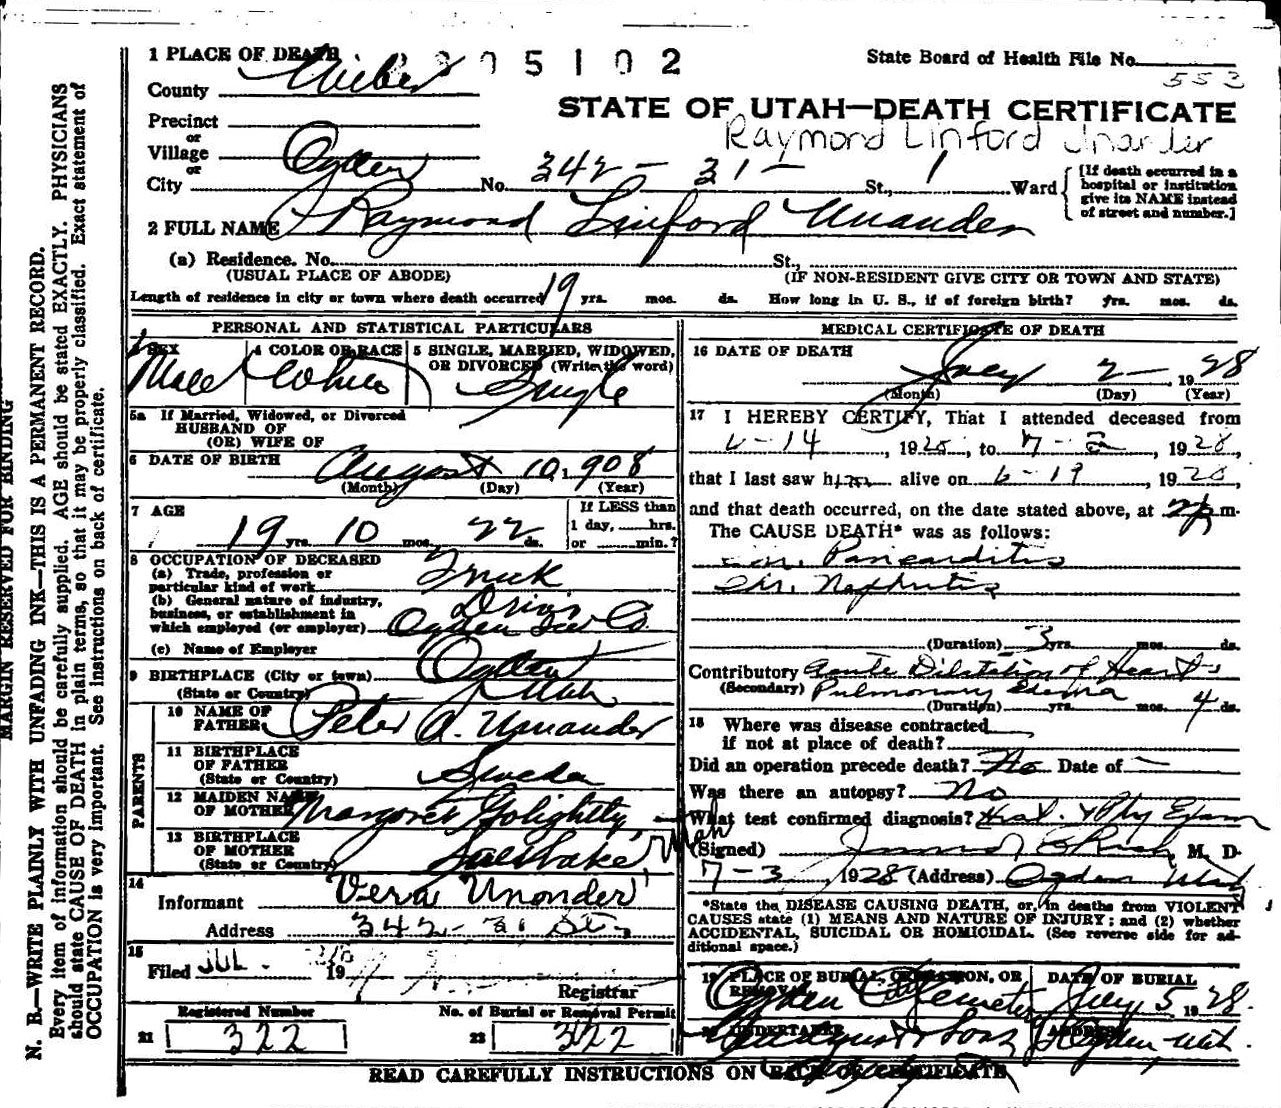 1 PLACE OF DEATH 2805102 State Board of Health File No. 553
County Weber
STATE OF UTAH—DEATH CERTIFICATE
Precinct
or
Raymond Linford Unander
Village
or
City Ogden No. 342 - 31 - St., 1 Ward
[If death occurred in a hospital or institution give its NAME instead of street and number.]
2 FULL NAME Raymond Linford Unander
(a) Residence. No. St.,
(USUAL PLACE OF ABODE) (IF NON-RESIDENT GIVE CITY OR TOWN AND STATE)
Length of residence in city or town where death occurred 19 yrs. mos. ds. How long in U. S., if of foreign birth? yrs. mos. ds.
PERSONAL AND STATISTICAL PARTICULARS
3 SEX Male
4 COLOR OR RACE White
5 SINGLE, MARRIED, WIDOWED, OR DIVORCED (Write the word) Single
5a If Married, Widowed, or Divorced
HUSBAND OF
(OR) WIFE OF
6 DATE OF BIRTH August 10, 1908
(Month) (Day) (Year)
7 AGE 19 yrs. 10 mos. 22 ds.
If LESS than
1 day, hrs.
or min.?
8 OCCUPATION OF DECEASED
(a) Trade, profession or
particular kind of work Truck Driver
(b) General nature of industry,
business, or establishment in
which employed (or employer) Ogden
(c) Name of Employer
9 BIRTHPLACE (City or town) Ogden
(State or Country) Utah
PARENTS
10 NAME OF FATHER Peter A. Unander
11 BIRTHPLACE OF FATHER
(State or Country) Sweden
12 MAIDEN NAME OF MOTHER Margaret Golightly
13 BIRTHPLACE OF MOTHER
(State or Country) Salt Lake, Utah
14 Informant Vera Unonder
Address 342 - 31 St.
15 Filed JUL 19
Registrar
Registered Number No. of Burial or Removal Permit
21 322 22 322
MEDICAL CERTIFICATE OF DEATH
16 DATE OF DEATH July 2 - 1928
(Month) (Day) (Year)
17 I HEREBY CERTIFY, That I attended deceased from
6-14, 1928, to 7-2, 1928,
that I last saw him alive on 6-19, 1928,
and that death occurred, on the date stated above, at m.
The CAUSE DEATH* was as follows:
Pancarditis
Chr. Nephritis
(Duration) 3 yrs. mos. ds.
Contributory Acute Dilatation of Heart
(Secondary) Pulmonary Edema
(Duration) yrs. mos. 4 ds.
18 Where was disease contracted
if not at place of death?
Did an operation precede death? No Date of —
Was there an autopsy? No
What test confirmed diagnosis? & Phy Exam
(Signed) Rich, M. D.
7-3, 1928 (Address) Ogden Utah
*State the DISEASE CAUSING DEATH, or, in deaths from VIOLENT
CAUSES state (1) MEANS AND NATURE OF INJURY; and (2) whether
ACCIDENTAL, SUICIDAL OR HOMICIDAL. (See reverse side for ad-
ditional space.)
19 PLACE OF BURIAL, CREMATION, OR REMOVAL Ogden City Cemetery
DATE OF BURIAL July 5 1928
20 UNDERTAKER & Sons
ADDRESS Ogden, Utah.
READ CAREFULLY INSTRUCTIONS ON BACK OF CERTIFICATE
MARGIN RESERVED FOR BINDING
N. B.—WRITE PLAINLY WITH UNFADING INK—THIS IS A PERMANENT RECORD.
Every item of information should be carefully supplied. AGE should be stated EXACTLY. PHYSICIANS
should state CAUSE OF DEATH in plain terms, so that it may be properly classified. Exact statement of
OCCUPATION is very important. See instructions on back of certificate.